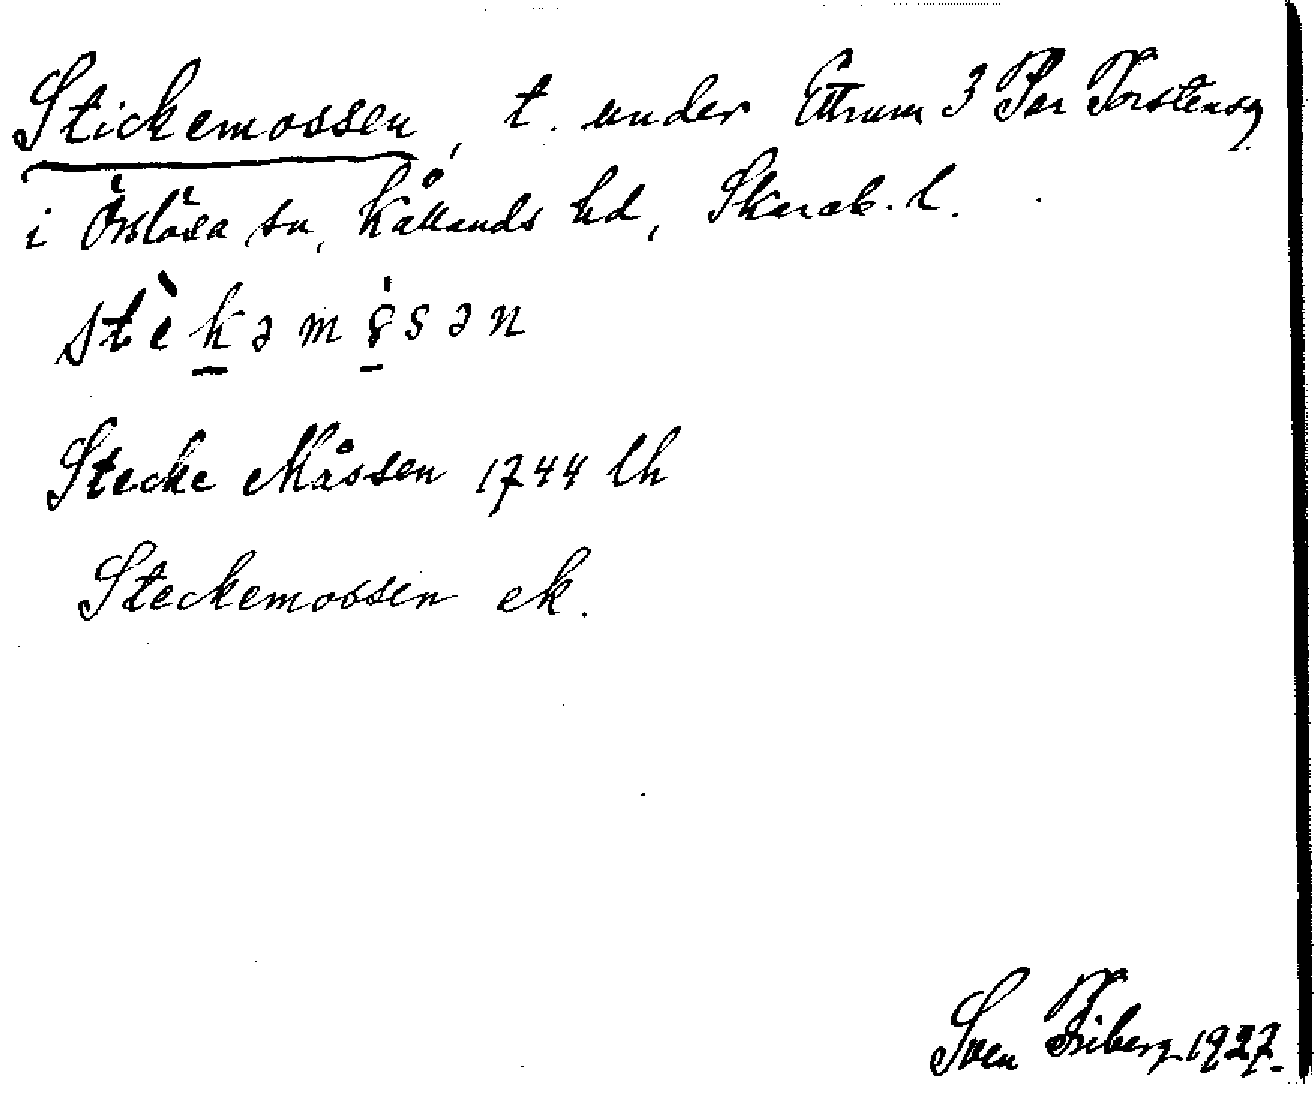 Stickemossen, t. under Ettrum 3 Per Torstensg
i Örslösa sn, Kållands hd, Skarab. l.
stèkəmòsən
Stecke Måssen 1744 lh
Steckemossen ek.
Sven Friberg 1927.